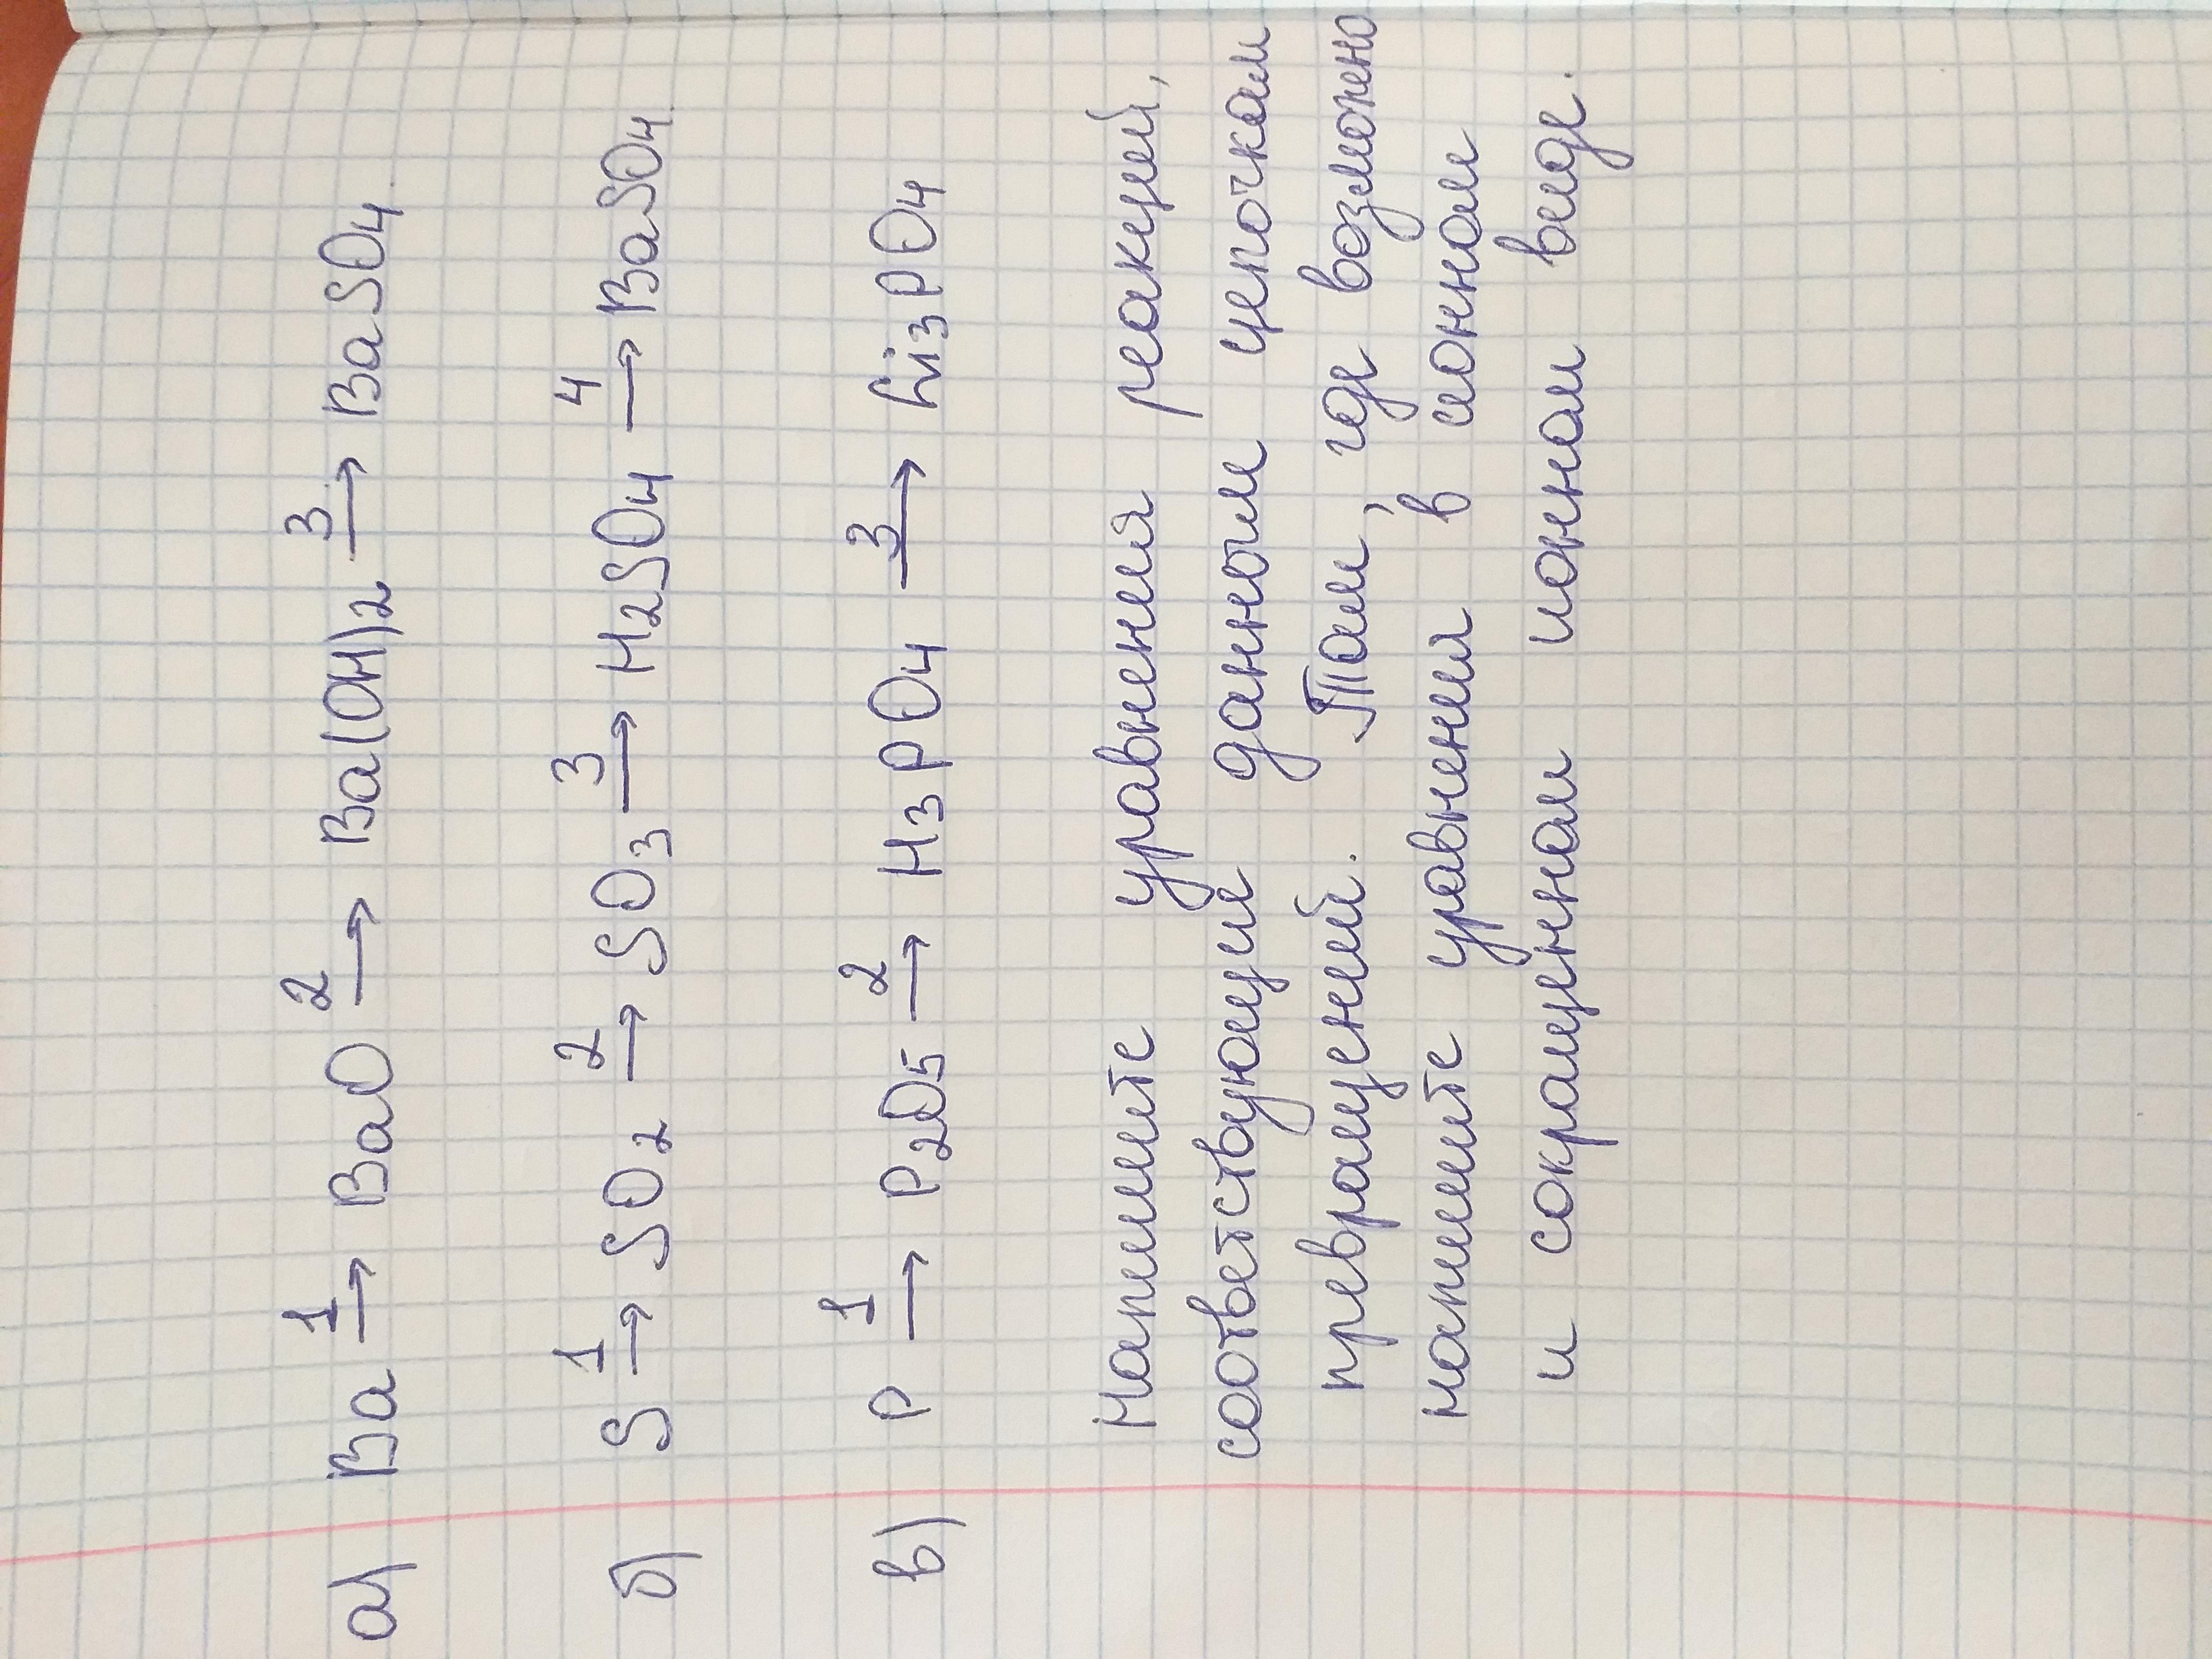 а) Ba 1→ BaO 2→ Ba(OH)2 3→ BaSO4.
б) S 1→ SO2 2→ SO3 3→ H2SO4 4→ BaSO4.
в) P 1→ P2O5 2→ H3PO4 3→ Li3PO4
Напишите уравнения реакций,
соответствующие данным цепочкам
превращений. Там, где возможно,
напишите уравнения в ионном
и сокращенном ионном виде.